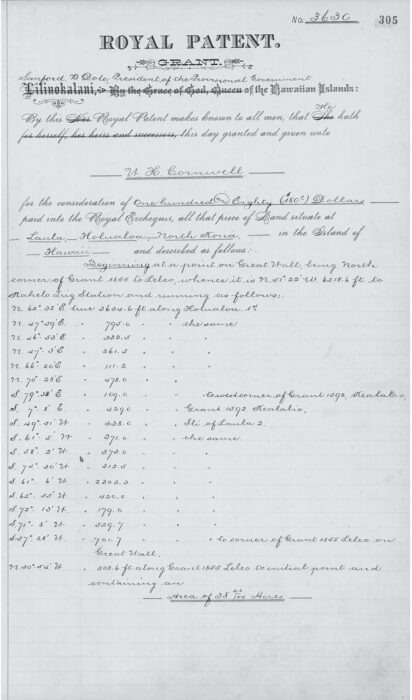 No. 3630 305
ROYAL PATENT.
GRANT.
Sanford B Dole President of the Provisional Government
Liliuokalani, by the Grace of God, Queen of the Hawaiian Islands:
By this Her Royal Patent makes known to all men, that She He hath
for herself, her heirs and successors, this day granted and given unto
W. H. Cornwell
for the consideration of One hundred and Eighty ($180.) Dollars
paid into the Royal Exchequer, all that piece of Land situate at
Holualoa, North Kona, in the Island of
Hawaii and described as follows:
Beginning at a point on Great Wall, being North
corner of Grant 1855 to Leleo, whence it is N. 51° 22' W. 6218.6 ft to
Trig Station and running as follows:
N. 62° 32' E. true ft along Holualoa 1st
N. 47° 59' E. " 795.0 " " the same
N. 46° 53' E " 332.5 " "
N. 47° 3' E " 261.5 " "
N. 66° 20' E " 111.2 " "
N. 70° 28' E " 478.0 " "
S. 79° 38' E " 109.0 " " lowest corner of Grant 1592 Kealalio,
S. 7° 8' E. " 429.0 " Grant 1592 Kealalio,
S. 49° 51' W " 338.0 " Ili of Laula 2.
S. 61° 3' W " 371.0 " the same
S. 58° 2' W. " 373.0 "
S. 74° 20' W " 212.5 "
S. 61° 6' W " 2303.3 "
S. 63° 55' W " 420.0 "
S. 72° 15' W " 179.0 "
S. 71° 8' W " 529.7 "
S. 57° 28' W " 701.7 " " to corner of Grant 1855 Leleo on
Great Wall.
N 30° 54' W. " 203.6 ft along Grant 1855 Leleo to initial point and
containing an
Area of 35 /100 Acres.